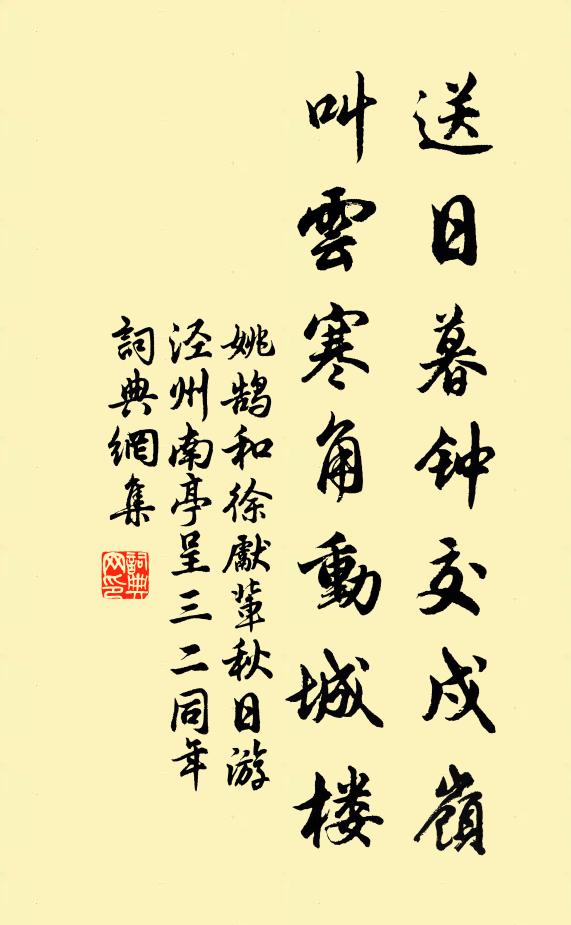 送日暮钟交戍嶺
叫雲寒角動城楼
姚鹄和徐獻輩秋日游
泾州南亭呈三二同年
詞典網集
詞典网印